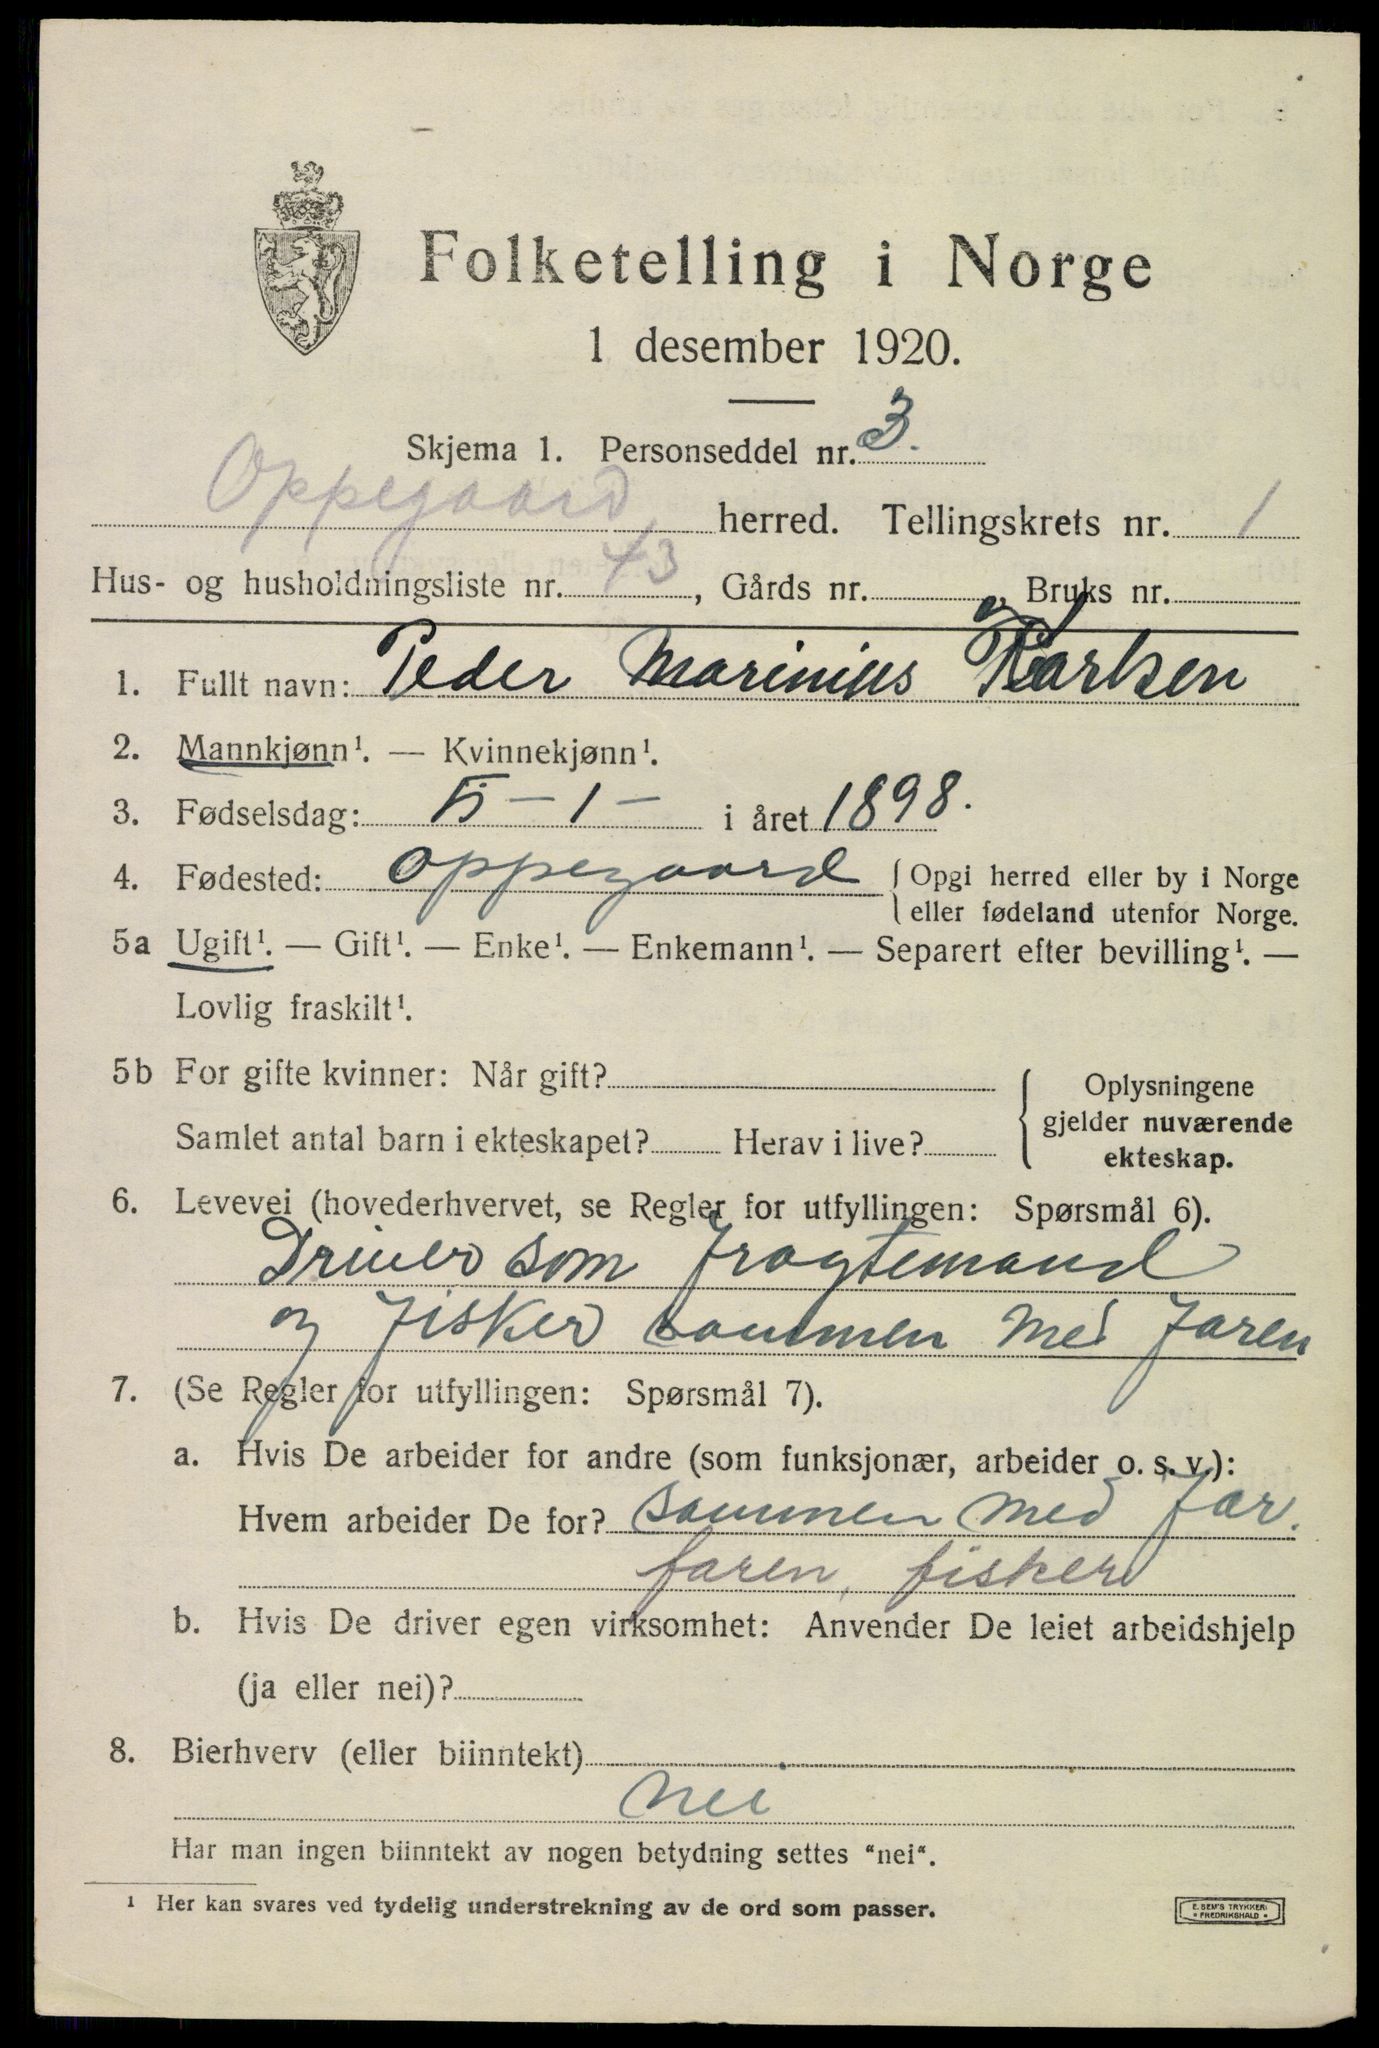 Folketelling i Norge
1 desember 1920.
Skjema 1. Personseddel nr. 3.
Oppegaard herred. Tellingskrets nr. 1
Hus- og husholdningsliste nr. 43, Gårds nr. , Bruks nr.
1. Fullt navn: Peder Marinius Karlsen
2. Mannkjønn¹. — Kvinnekjønn¹.
3. Fødselsdag: 5 - 1 - i året 1898.
4. Fødested: Oppegaard { Opgi herred eller by i Norge
eller fødeland utenfor Norge.
5a Ugift¹. — Gift¹. — Enke¹. — Enkemann¹. — Separert efter bevilling¹. —
Lovlig fraskilt¹.
5b For gifte kvinner: Når gift?
Samlet antal barn i ekteskapet? Herav i live?
{ Oplysningene
gjelder nuværende
ekteskap.
6. Levevei (hovederhvervet, se Regler for utfyllingen: Spørsmål 6).
Driver som fragtemand
og fisker sammen med faren
7. (Se Regler for utfyllingen: Spørsmål 7).
a. Hvis De arbeider for andre (som funksjonær, arbeider o. s. v.):
Hvem arbeider De for? sammen med far.
faren, fisker
b. Hvis De driver egen virksomhet: Anvender De leiet arbeidshjelp
(ja eller nei)?
8. Bierhverv (eller biinntekt)
nei
Har man ingen biinntekt av nogen betydning settes "nei".
¹ Her kan svares ved tydelig understrekning av de ord som passer.
E. SEM'S TRYKKERI
• FREDRIKSHALD •